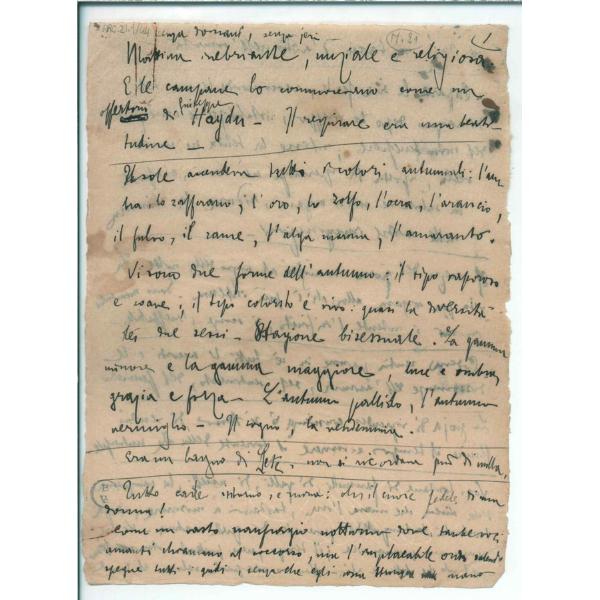 senza domani, senza ieri —
M. 21
1
Mattina inebriante, nuziale e religiosa
E le campane lo commovevano come un
offertorio di Giuseppe Haydn — Il respirare era una beati-
tudine —
Il sole accendeva tutti i colori autunnali: l'am-
bra, lo zafferano, l'oro, lo zolfo, l'ocra, l'arancio,
il fulvo, il rame, l'alga marina, l'amaranto.
Vi sono due forme dell'autunno: il tipo vaporoso
e soave, il tipo colorito e vivo: quasi la diversità
dei due sessi — Stagione bisessuale. La gamma
minore e la gamma maggiore, luce e ombra,
grazia e forza — L'autunno pallido, l'autunno
vermiglio — Il sogno, la vendemmia.
Era un bagno di Lete, non si ricordava più di nulla,
Tutto cade intorno, e rovina: il cuore fedele di una
donna!
Come in un vasto naufragio notturno dove tante
amanti chiamano al soccorso, ma l'implacabile onda
spegne tutti i gridi, senza che egli possa una mano